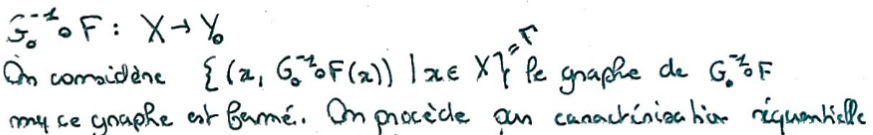 G₀⁻¹∘F : X → Y₀
On considère {(x, G₀⁻¹∘F(x)) | x ∈ X} = Γ le graphe de G₀⁻¹∘F
mq ce graphe est fermé. On procède par caractérisation séquentielle